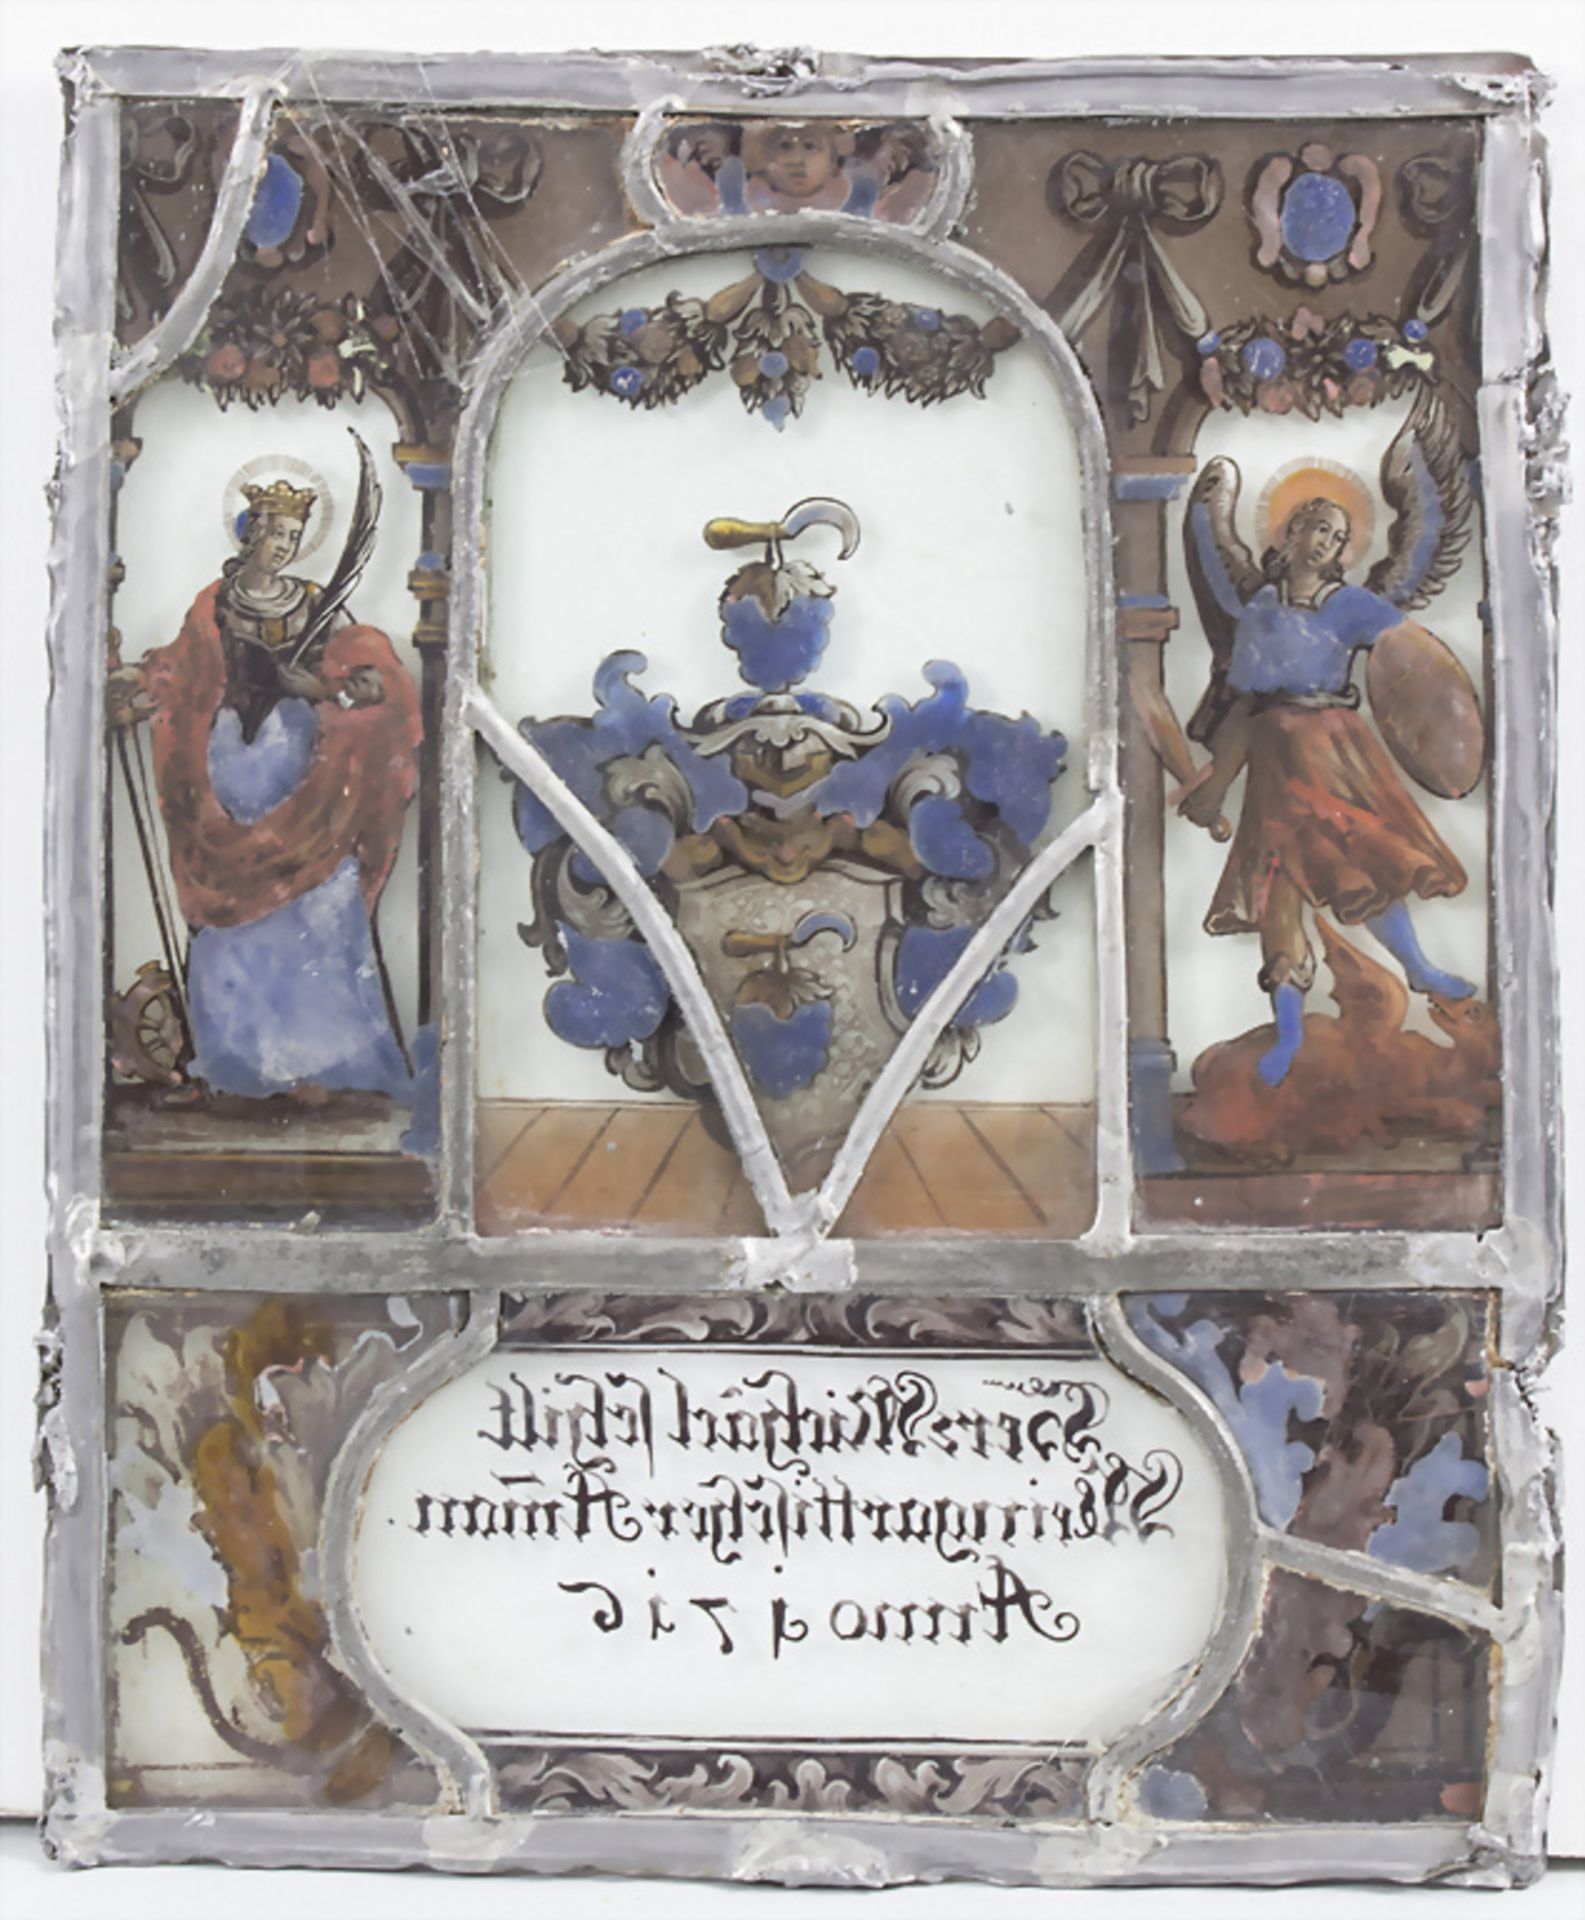 Herr Michäel schilt
Weingarttischer Am̄an
Anno 1716